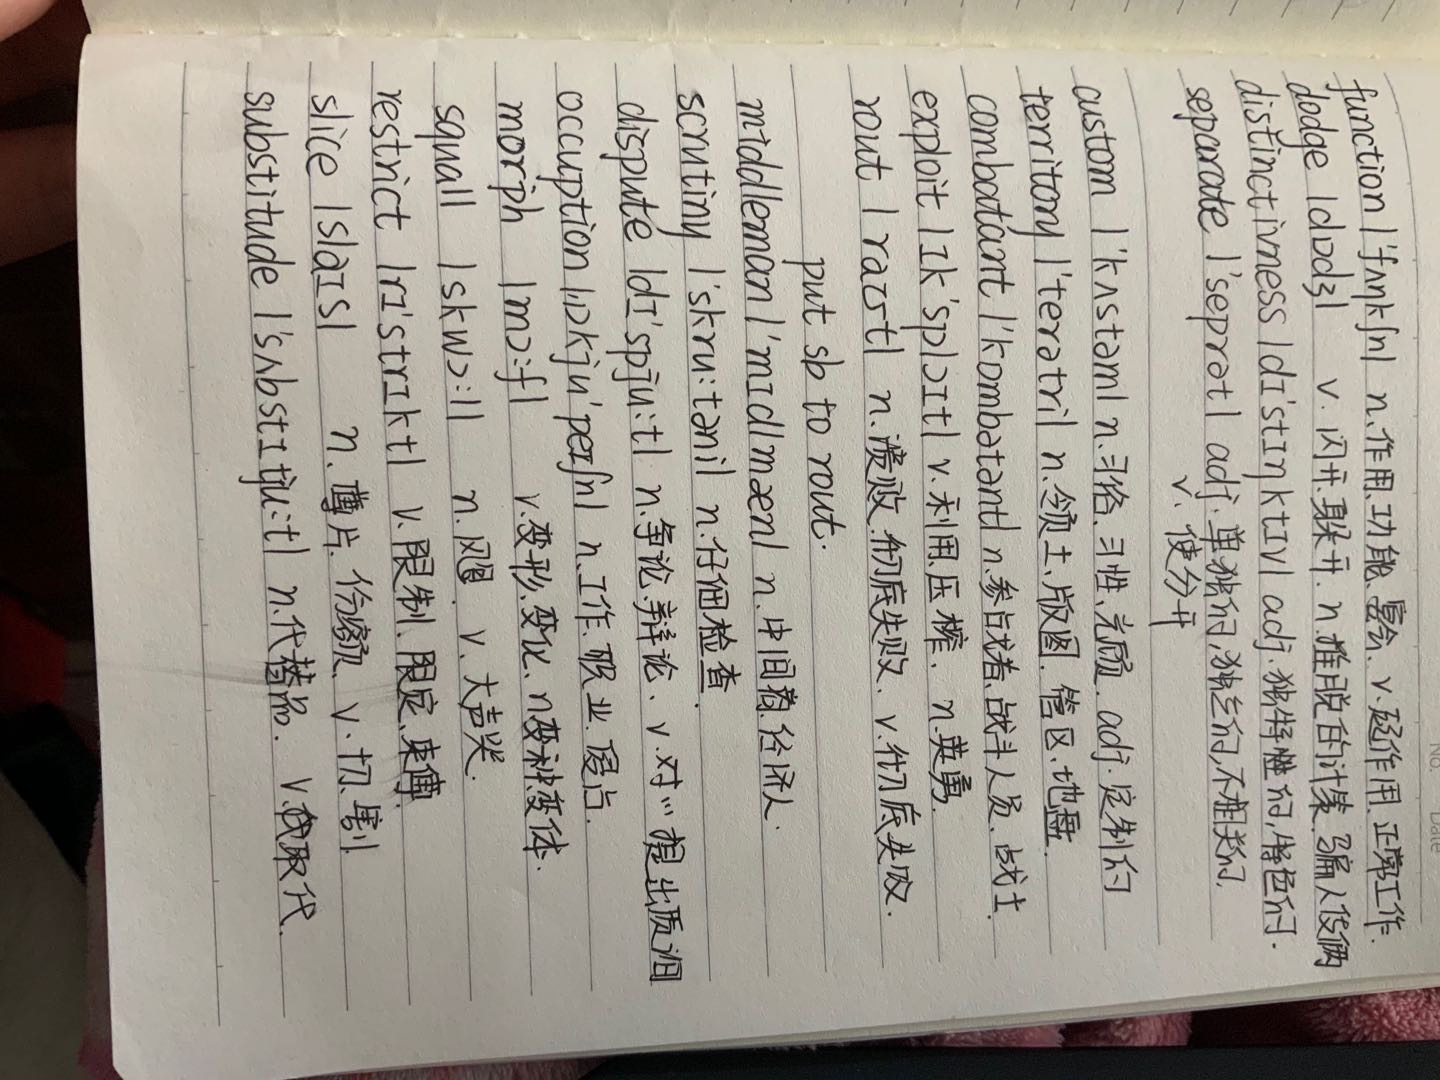 No.
Date
function |'fʌŋkʃn| n.作用.功能.宴会. v.起作用.正常工作.
dodge |dɒdʒ| v.闪开.躲开. n.推脱的计策.骗人伎俩
distinctivness |dɪ'stɪŋktɪv| adj.独特性的,特色的.
separate |'seprət| adj.单独的,独立的,不相关的.
v.使分开
custom |'kʌstəm| n.习俗.习性,光顾. adj.定制的
territory |'terətri| n.领土.版图.管区.地盘.
combatant |'kɒmbətənt| n.参战者.战斗人员.战士.
exploit |ɪk'splɔɪt| v.利用.压榨. n.英勇.
rout |raʊt| n.溃败.彻底失败. v.彻底失败.
put sb to rout.
middleman |'mɪdlmæn| n.中间商.经济人.
scrutiny |'skru:təni| n.仔细检查.
dispute |dɪ'spju:t| n.争论.辩论. v.对…提出质询
occuption |ˌɒkju'peɪʃn| n.工作.职业.侵占.
morph |mɔ:f| v.变形.变化. n变种.变体.
squall |skwɔ:l| n.风飑. v.大声哭.
restrict |rɪ'strɪkt| v.限制.限定.束缚.
slice |slaɪs| n.薄片.份额. v.切.割.
substitude |'sʌbstɪtju:t| n.代替品. v.取代.